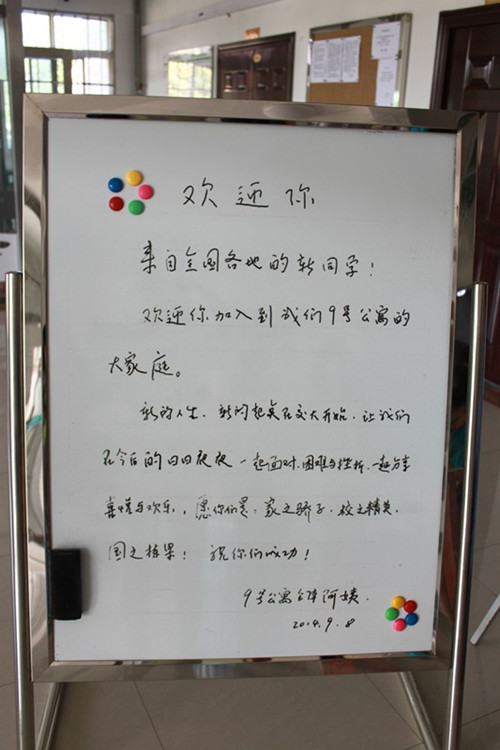 欢迎你
来自全国各地的新同学!
欢迎你加入到我们9号公寓的
大家庭。
新的人生、新的起点在交大开始,让我们
在今后的日日夜夜一起面对困难与挫折,一起分享
喜悦与欢乐,愿你们是:家之骄子、校之精英、
国之栋梁!祝你们成功!
9号公寓全体阿姨
2014.9.8